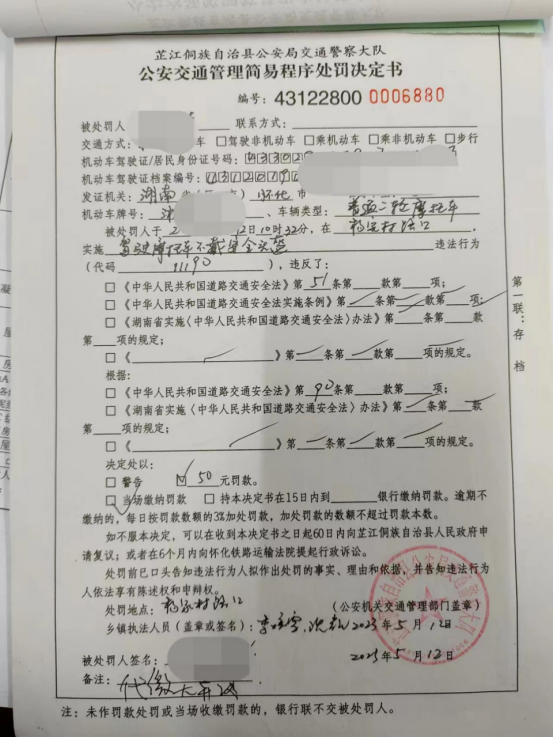 芷江侗族自治县公安局交通警察大队
公安交通管理简易程序处罚决定书
编号:43122800 0006880
被处罚人 联系方式:
交通方式: 车 □驾驶非机动车 □乘机动车 □乘非机动车 □步行
机动车驾驶证/居民身份证号码:
机动车驾驶证档案编号:
发证机关:湖南省 怀化市
机动车牌号: 、车辆类型:普通二轮摩托车
被处罚人于 12日10时32分,在 村路口
实施 驾驶摩托车不戴安全头盔 违法行为
(代码 11190 ),违反了:
□《中华人民共和国道路交通安全法》第51条第 款第 项;
□《中华人民共和国道路交通安全法实施条例》第 条第 款第 项;
□《湖南省实施〈中华人民共和国道路交通安全法〉办法》第 条第 款
第 项的规定;
□《 》第 条第 款第 项的规定。
根据:
□《中华人民共和国道路交通安全法》第90条第 款第 项;
□《湖南省实施〈中华人民共和国道路交通安全法〉办法》第 条第 款
第 项的规定;
□《 》第 条第 款第 项的规定。
决定处以:
□ 警告 ☑ 50 元罚款。
☑ 当场缴纳罚款 □ 持本决定书在15日内到 银行缴纳罚款。逾期不
缴纳的,每日按罚款数额的3%加处罚款,加处罚款的数额不超过罚款本数。
如不服本决定,可以在收到本决定书之日起60日内向芷江侗族自治县人民政府申
请复议;或者在6个月内向怀化铁路运输法院提起行政诉讼。
处罚前已口头告知违法行为人拟作出处罚的事实、理由和依据,并告知违法行为
人依法享有陈述权和申辩权。
处罚地点: 村路口 (公安机关交通管理部门盖章)
乡镇执法人员(盖章或签名): 2023年5月12日
被处罚人签名: 2023年5月12日
备注:代缴
注:未作罚款处罚或当场收缴罚款的,银行联不交被处罚人。
第一联:存档